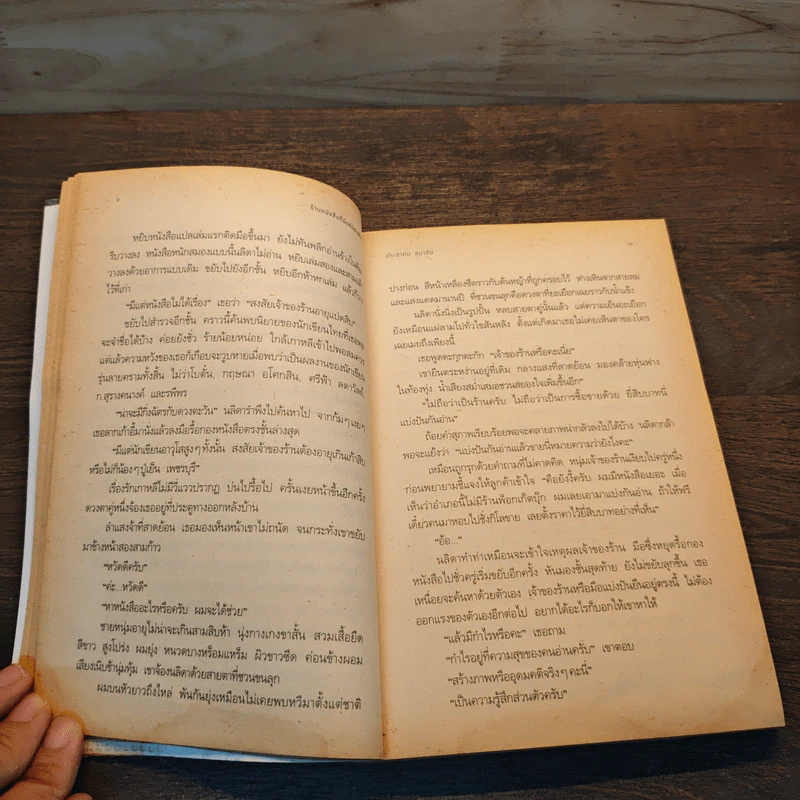 ร้านหนังสือที่
หยิบหนังสือแปลเล่มแรกติดมือขึ้นมา ยังไม่ทันพลิกอ่านข้างใน
รีบวางลง หนังสือหนักสมองแบบนี้ลิดาไม่อ่าน หยิบเล่มสองและสามแล้ว
วางลงด้วยอาการแบบเดิม ขยับไปยังอีกชั้น หยิบอีกห้าหกเล่ม แล้วก็วาง
ไว้ที่เก่า
“มีแต่หนังสือไม่ได้เรื่อง” เธอว่า “สงสัยเจ้าของร้านอายุแปดสิบ”
ขยับไปสำรวจอีกชั้น คราวนี้ค้นพบนิยายของนักเขียนไทยที่เธอพอ
จะจำชื่อได้บ้าง ค่อยยังชั่ว ร้ายน้อยหน่อย ใกล้เกาหลีเข้าไปพอสมควร
แต่แล้วความหวังของเธอก็เกือบจะวูบหายเมื่อพบว่าเป็นผลงานของนักเขียน
รุ่นลายครามทั้งสิ้น ไม่ว่าโบตั๋น, กฤษณา อโศกสิน, ศรีฟ้า ลดาวัลย์,
ก.สุรางคนางค์ และรพีพร
“น่าจะมีกิ่งฉัตรกับดวงตะวัน” นลิดารำพึงไปค้นหาไป จากก้มๆ เงยๆ
เธอลากเก้าอี้มานั่งแล้วลงมือรื้อกองหนังสือตรงชั้นล่างสุด
“มีแต่นักเขียนอาวุโสสูงๆ ทั้งนั้น สงสัยเจ้าของร้านต้องอายุเกินเก้าสิบ
หรือไม่ก็น้องๆ ปู่เย็น เพชรบุรี”
เรื่องรักเกาหลีไม่มีวี่แววปรากฏ บ่นไปรื้อไป ครั้นเงยหน้าขึ้นอีกครั้ง
ดวงตาคู่หนึ่งจ้องเธออยู่ที่ประตูทางออกหลังบ้าน
ลำแสงจ้าที่สาดย้อน เธอมองเห็นหน้าเขาไม่ถนัด จนกระทั่งเขาขยับ
มาข้างหน้าสองสามก้าว
“หวัดดีครับ”
“ค่ะ...หวัดดี”
“หาหนังสืออะไรหรือครับ ผมจะได้ช่วย”
ชายหนุ่มอายุไม่น่าจะเกินสามสิบห้า นุ่งกางเกงขาสั้น สวมเสื้อยืด
สีขาว สูงโปร่ง ผมยุ่ง หนวดบางหร็อมแหร็ม ผิวขาวซีด ค่อนข้างผอม
เสียงเนิบช้านุ่มทุ้ม เขาจ้องนลิดาด้วยสายตาที่ชวนขนลุก
ผมบนหัวยาวถึงไหล่ พันกันยุ่งเหมือนไม่เคยพบหวีมาตั้งแต่ชาติ
ประชาคม ลุนาชัย
ปางก่อน สีหน้าเหลืองซีดราวกับต้นหญ้าที่ถูกครอบไว้ ห่างเหินจากสายลม
และแสงแดดมานานปี ที่ชวนขนลุกคือดวงตาที่ยะเยือกเฉยราวกับน้ำแข็ง
นลิดานั่งนิ่งเป็นรูปปั้น หลบสายตาคู่นั้นแล้ว แต่ความเย็นยะเยือก
ยังเหมือนแผ่ลามไปทั่วไขสันหลัง ตั้งแต่เกิดมาเธอไม่เคยเห็นตาของใคร
เฉยเมยถึงเพียงนี้
เธอพูดตะกุกตะกัก “เจ้าของร้านหรือคะเนี่ย”
เขายืนตระหง่านอยู่ที่เดิม กลางแสงที่สาดย้อน มองคล้ายหุ่นฟาง
ในท้องทุ่ง น้ำเสียงสม่ำเสมอชวนสยองใจเพิ่มขึ้นอีก
“ไม่ถือว่าเป็นร้านครับ ไม่ถือว่าเป็นการซื้อขายด้วย ยี่สิบบาทนี่
แบ่งปันกันอ่าน”
ถ้อยคำสุภาพเรียบร้อยพอจะคลายภาพน่ากลัวลงไปได้บ้าง นลิดากล้า
พอจะแย้งว่า “แบ่งปันกันอ่านแล้วขายนี่หมายความว่ายังไงคะ”
เหมือนถูกรุกด้วยคำถามที่ไม่คาดคิด หนุ่มเจ้าของร้านเงียบไปครู่หนึ่ง
ก่อนพยายามชี้แจงให้ลูกค้าเข้าใจ “คือยังงี้ครับ ผมมีหนังสือเยอะ เมื่อ
เห็นว่าอำเภอนี้ไม่มีร้านพ็อกเก็ตบุ๊ก ผมเลยเอามาแบ่งกันอ่าน ถ้าให้ฟรี
เดี๋ยวคนมาหอบไปชั่งกิโลขาย เลยตั้งราคาไว้ยี่สิบบาทอย่างที่เห็น”
“อ้อ...”
นลิดาทำท่าเหมือนจะเข้าใจเหตุผลเจ้าของร้าน มือซึ่งหยุดรื้อกอง
หนังสือไปชั่วครู่เริ่มขยับอีกครั้ง หันมองชั้นสุดท้าย ยังไม่ขยับลุกขึ้น เธอ
เหนื่อยจะค้นหาด้วยตัวเอง เจ้าของร้านหรือมือแบ่งปันยืนอยู่ตรงนี้ ไม่ต้อง
ออกแรงของตัวเองอีกต่อไป อยากได้อะไรก็บอกให้เขาหาให้
“แล้วมีกำไรหรือคะ” เธอถาม
“กำไรอยู่ที่ความสุขของคนอ่านครับ” เขาตอบ
“สร้างภาพหรืออุดมคติจริงๆ คะนี่”
“เป็นความรู้สึกส่วนตัวครับ”